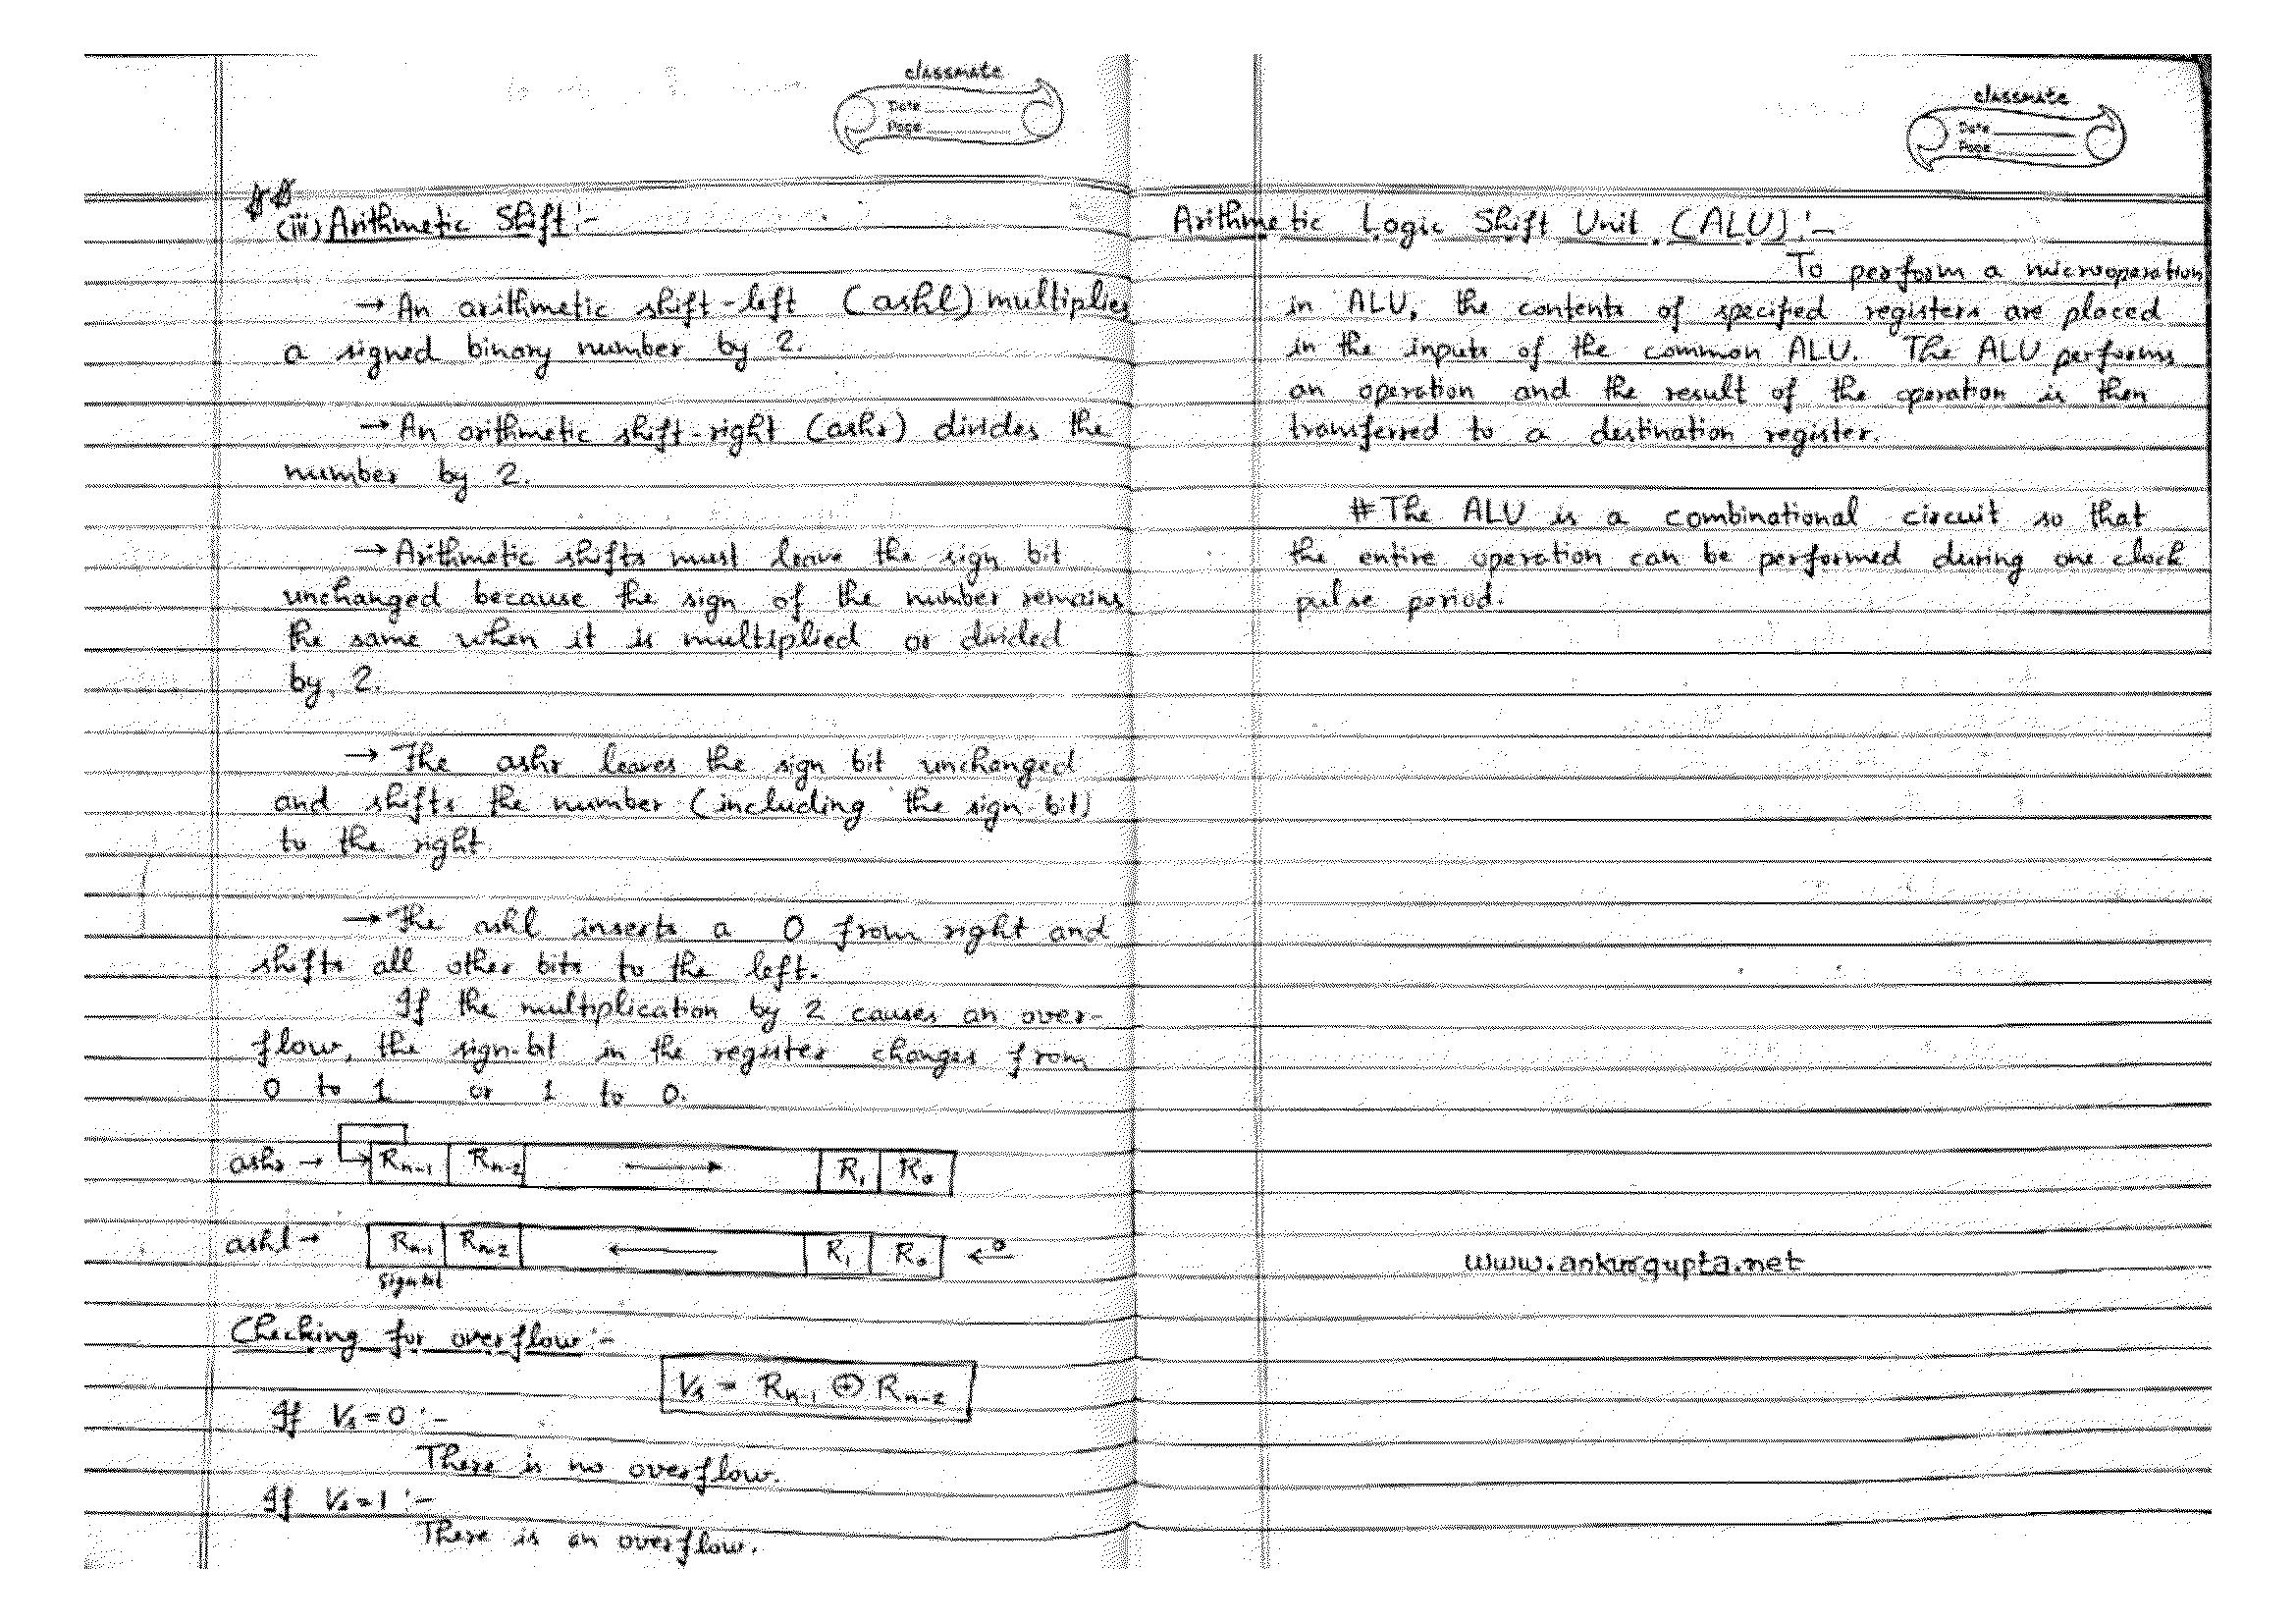 classmate
Date
Page
(iii) Arithmetic Shift :-
→ An arithmetic shift-left (ashl) multiplies
a signed binary number by 2.
→ An arithmetic shift-right (ashr) divides the
number by 2.
→ Arithmetic shifts must leave the sign bit
unchanged because the sign of the number remains
the same when it is multiplied or divided
by 2.
→ The ashr leaves the sign bit unchanged
and shifts the number (including the sign bit)
to the right
→ The ashl inserts a 0 from right and
shifts all other bits to the left.
If the multiplication by 2 causes an over-
flow, the sign-bit in the register changes from
0 to 1 or 1 to 0.
ashr → Rn-1 Rn-2 → R1 R0
ashl → Rn-1 Rn-2 ← R1 R0 ← 0
Sign bit
Checking for overflow :-
Vs = Rn-1 ⊕ Rn-2
If Vs = 0 :-
There is no overflow.
If Vs = 1 :-
There is an overflow.
classmate
Date
Page
Arithmetic Logic Shift Unit (ALU) :-
To perform a microoperation
in ALU, the contents of specified registers are placed
in the inputs of the common ALU. The ALU performs
an operation and the result of the operation is then
transferred to a destination register.
# The ALU is a combinational circuit so that
the entire operation can be performed during one clock
pulse period.
www.ankurgupta.net